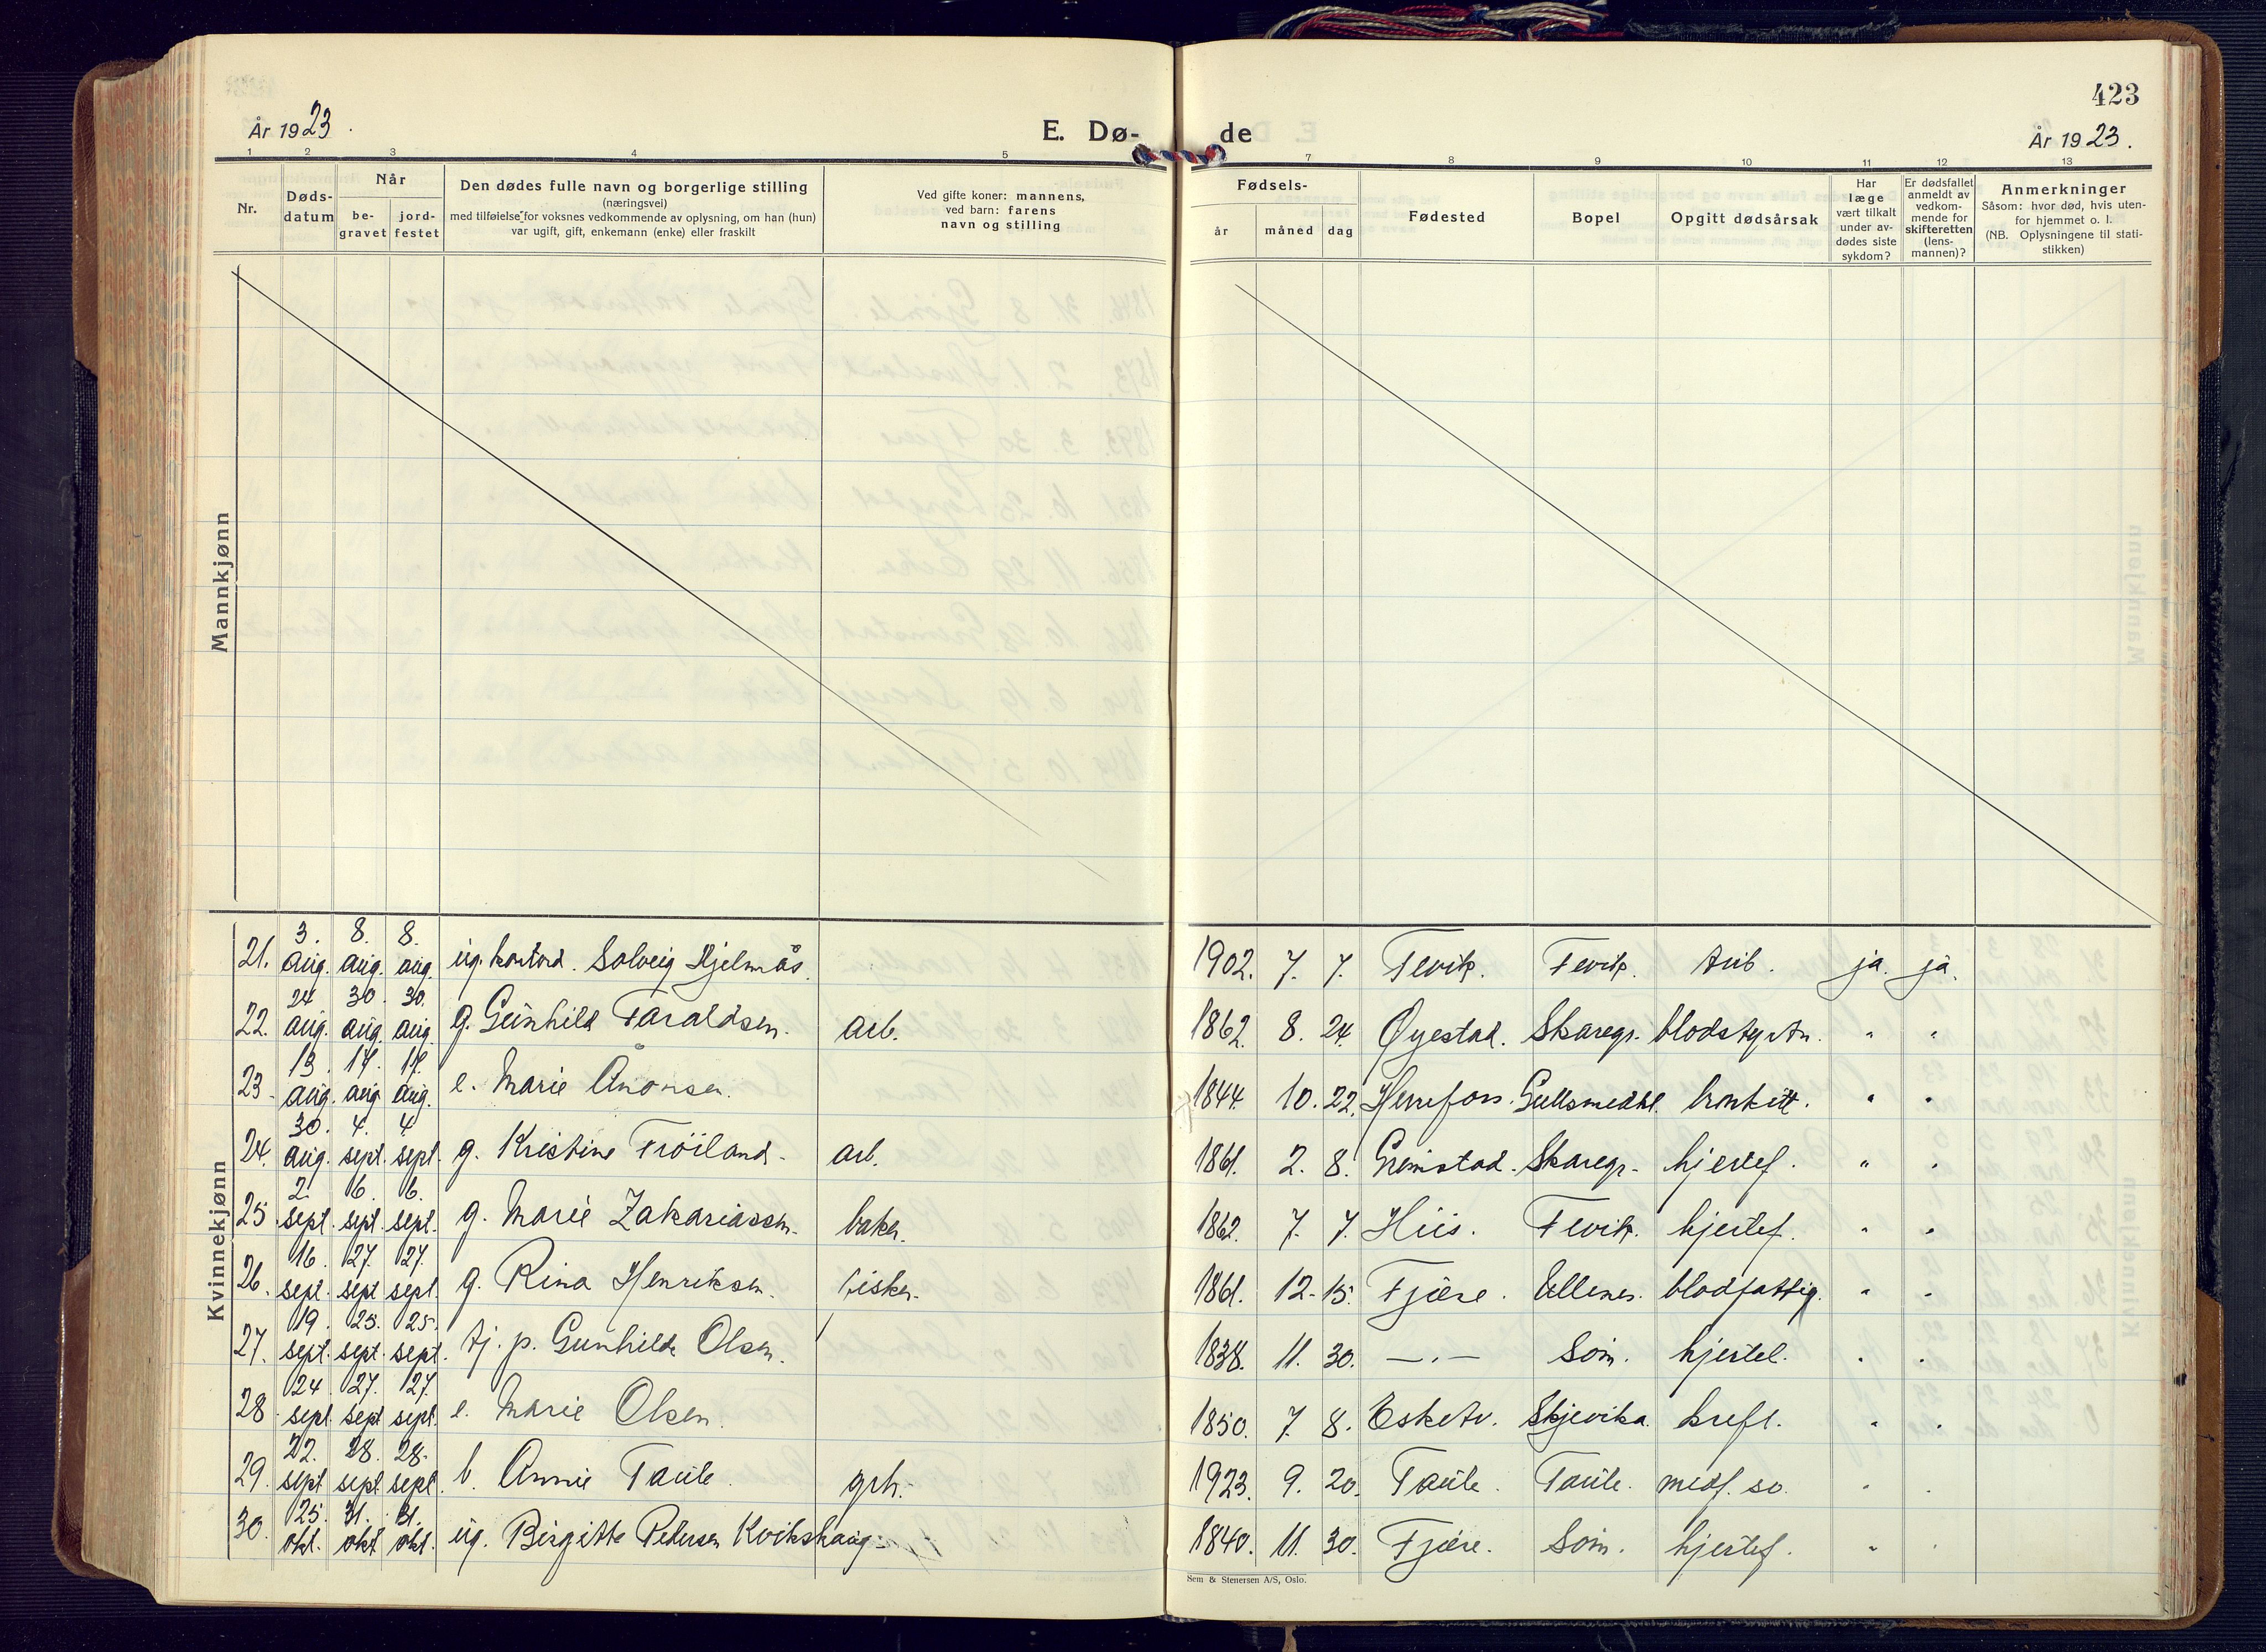 423
År 1923.
E. Dø-
de
År 1923.
1 2 3 4 5 7 8 9 10 11 12 13
Nr.
Døds-
datum
Når
be-
gravet
jord-
festet
Den dødes fulle navn og borgerlige stilling
(næringsvei)
med tilføielse for voksnes vedkommende av oplysning, om han (hun)
var ugift, gift, enkemann (enke) eller fraskilt
Ved gifte koner: mannens,
ved barn: farens
navn og stilling
Fødsels-
år måned dag
Fødested
Bopel
Opgitt dødsårsak
Har
læge
vært tilkalt
under av-
dødes siste
sykdom?
Er dødsfallet
anmeldt av
vedkom-
mende for
skifteretten
(lens-
mannen)?
Anmerkninger
Såsom: hvor død, hvis uten-
for hjemmet o. l.
(NB. Oplysningene til stati-
stikken)
Mannkjønn
Kvinnekjønn
21. 3. aug. 8. aug. 8. aug. ug. Solveig Hjelmås. 1902. 7. 7. Fevik. Fevik. ja. ja.
22. 24 aug. 30. aug. 30. aug. g. Gunhild Taraldsen. arb. 1862. 8. 24. Øyestad. Skaregr. blodstyrtn. " "
23. 13. aug. 17. aug. 17. aug. e. Marie Ånonsen. 1844. 10. 22. Herefoss. Gullsmedh. bronkitt. " "
24. 30. aug. 4. sept. 4 sept. g. Kristine Fröiland. arb. 1861. 2. 8. Grimstad. Skaregr. hjertef. " "
25. 2. sept. 6. sept. 6. sept. g. Marie Zakariassen. baker. 1862. 7. 7. Hiis. Fevik. hjertef. " "
26. 16. sept. 27. sept. 27. sept. g. Rina Henriksen. fisker. 1861. 12. 15. Fjære. Ullenes. blodfattig. " "
27. 19. sept. 25. sept. 25. sept. tj. p. Gunhilde Olsen. 1838. 11. 30. —"— Söm. hjertel. " "
28. 24 sept. 27. sept. 27. sept. e. Marie Olsen. 1850. 7. 8. Eskedv. Skjevika. kreft. " "
29. 22. sept. 28. sept. 28. sept. b. Annie Taule. grh. 1923. 9. 20. Taule. Taule. medf. sv. " "
30. 25. okt. 31. okt. 31. okt. ug. Birgitte Pedersen Kvikshaug. 1840. 11. 30. Fjære. Söm. hjertef. " "
Sem & Stenersen A/S, Oslo.